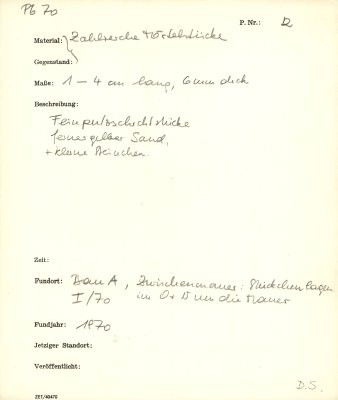 Pb 70
P. Nr.: 12
Material: Zahlreiche Mörtelstücke
Gegenstand:
Maße: 1 – 4 cm lang, 6 mm dick
Beschreibung:
Feinputzschichtstücke
feiner gelber Sand,
+ kleine Steinchen.
Zeit:
Fundort: Bau A, Zwischenmauer: Stückchen lagen
I/70 im O + W um die Mauer
Fundjahr: 1970
Jetziger Standort:
Veröffentlicht:
D.S.
ZE1/40470